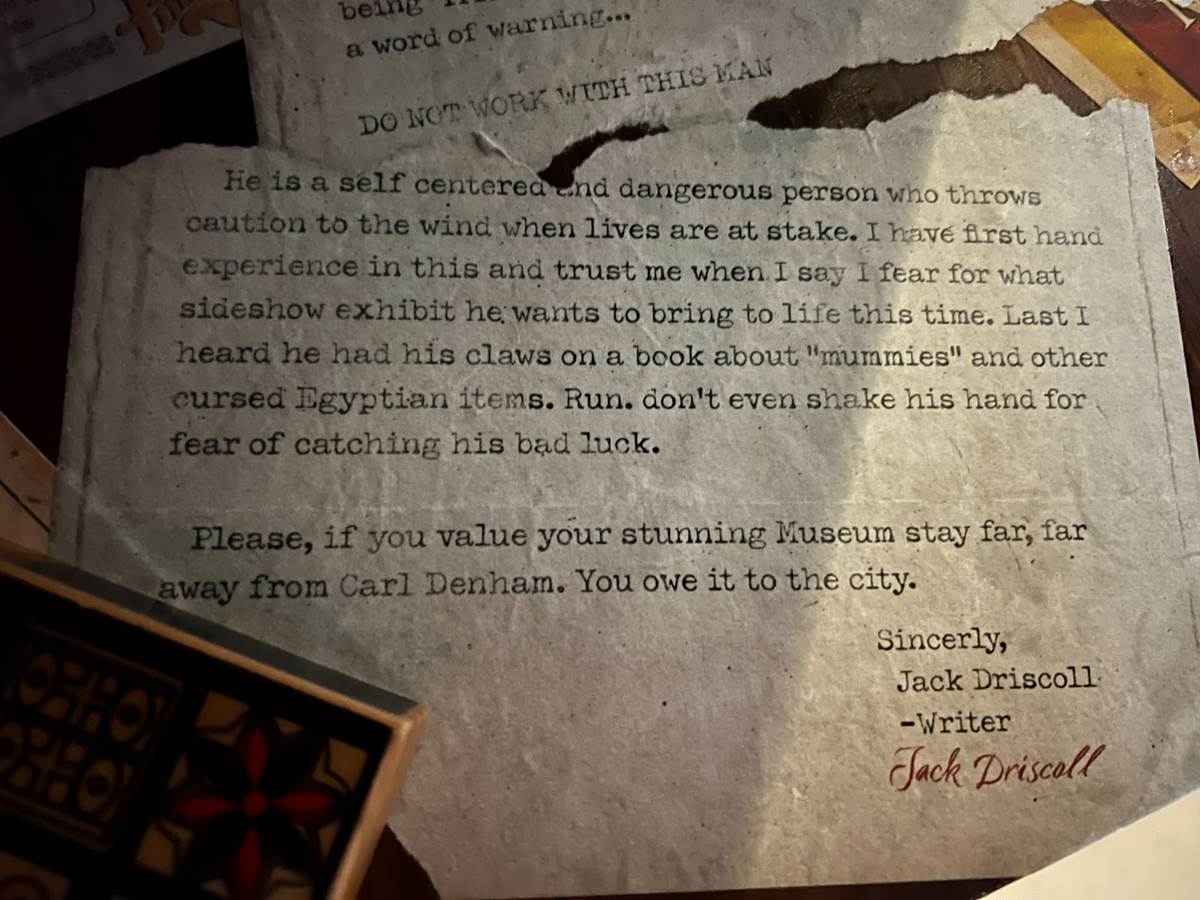 being
a word of warning...
DO NOT WORK WITH THIS MAN
He is a self centered and dangerous person who throws
caution to the wind when lives are at stake. I have first hand
experience in this and trust me when I say I fear for what
sideshow exhibit he wants to bring to life this time. Last I
heard he had his claws on a book about "mummies" and other
cursed Egyptian items. Run. don't even shake his hand for
fear of catching his bad luck.
Please, if you value your stunning Museum stay far, far
away from Carl Denham. You owe it to the city.
Sincerly,
Jack Driscoll
-Writer
Jack Driscoll